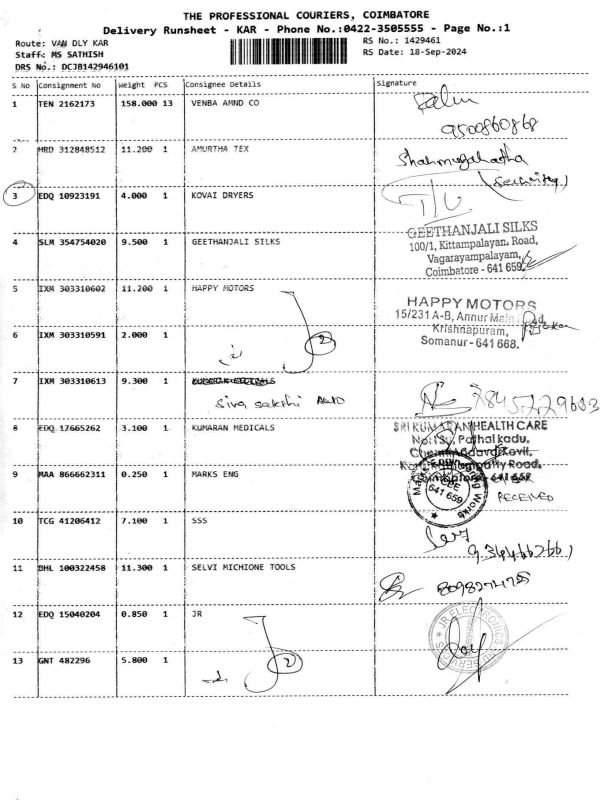 THE PROFESSIONAL COURIERS, COIMBATORE
Delivery Runsheet - KAR - Phone No.:0422-3505555 - Page No.:1
Route: VAN DLY KAR
RS No.: 1429461
Staff: MS SATHISH
RS Date: 18-Sep-2024
DRS No.: DCJB142946101
S No Consignment No Weight PCS Consignee Details Signature
1 TEN 2162173 158.000 13 VENBA AMND CO
9500860868
2 HRD 312848512 11.200 1 AMURTHA TEX
(Security)
3 EDQ 10923191 4.000 1 KOVAI DRYERS
GEETHANJALI SILKS
100/1, Kittampalayan. Road,
Vagarayampalayam,
Coimbatore - 641 659.
4 SLM 354754020 9.500 1 GEETHANJALI SILKS
5 IXM 303310602 11.200 1 HAPPY MOTORS
HAPPY MOTORS
15/231 A-B, Annur Main
Krishnapuram,
Somanur - 641 668.
6 IXM 303310591 2.000 1
2
7 IXM 303310613 9.300 1
Siva sakthi Auto
8 EDQ 17665262 3.100 1 KUMARAN MEDICALS
SRI KUMARAN HEALTH CARE
9 MAA 866662311 0.250 1 MARKS ENG
CBE
641 659
RECEIVED
10 TCG 41206412 7.100 1 SSS
11 BHL 100322458 11.300 1 SELVI MICHIONE TOOLS
12 EDQ 15040204 0.850 1 JR
JR ELECTRONICS
13 GNT 482296 5.800 1
2